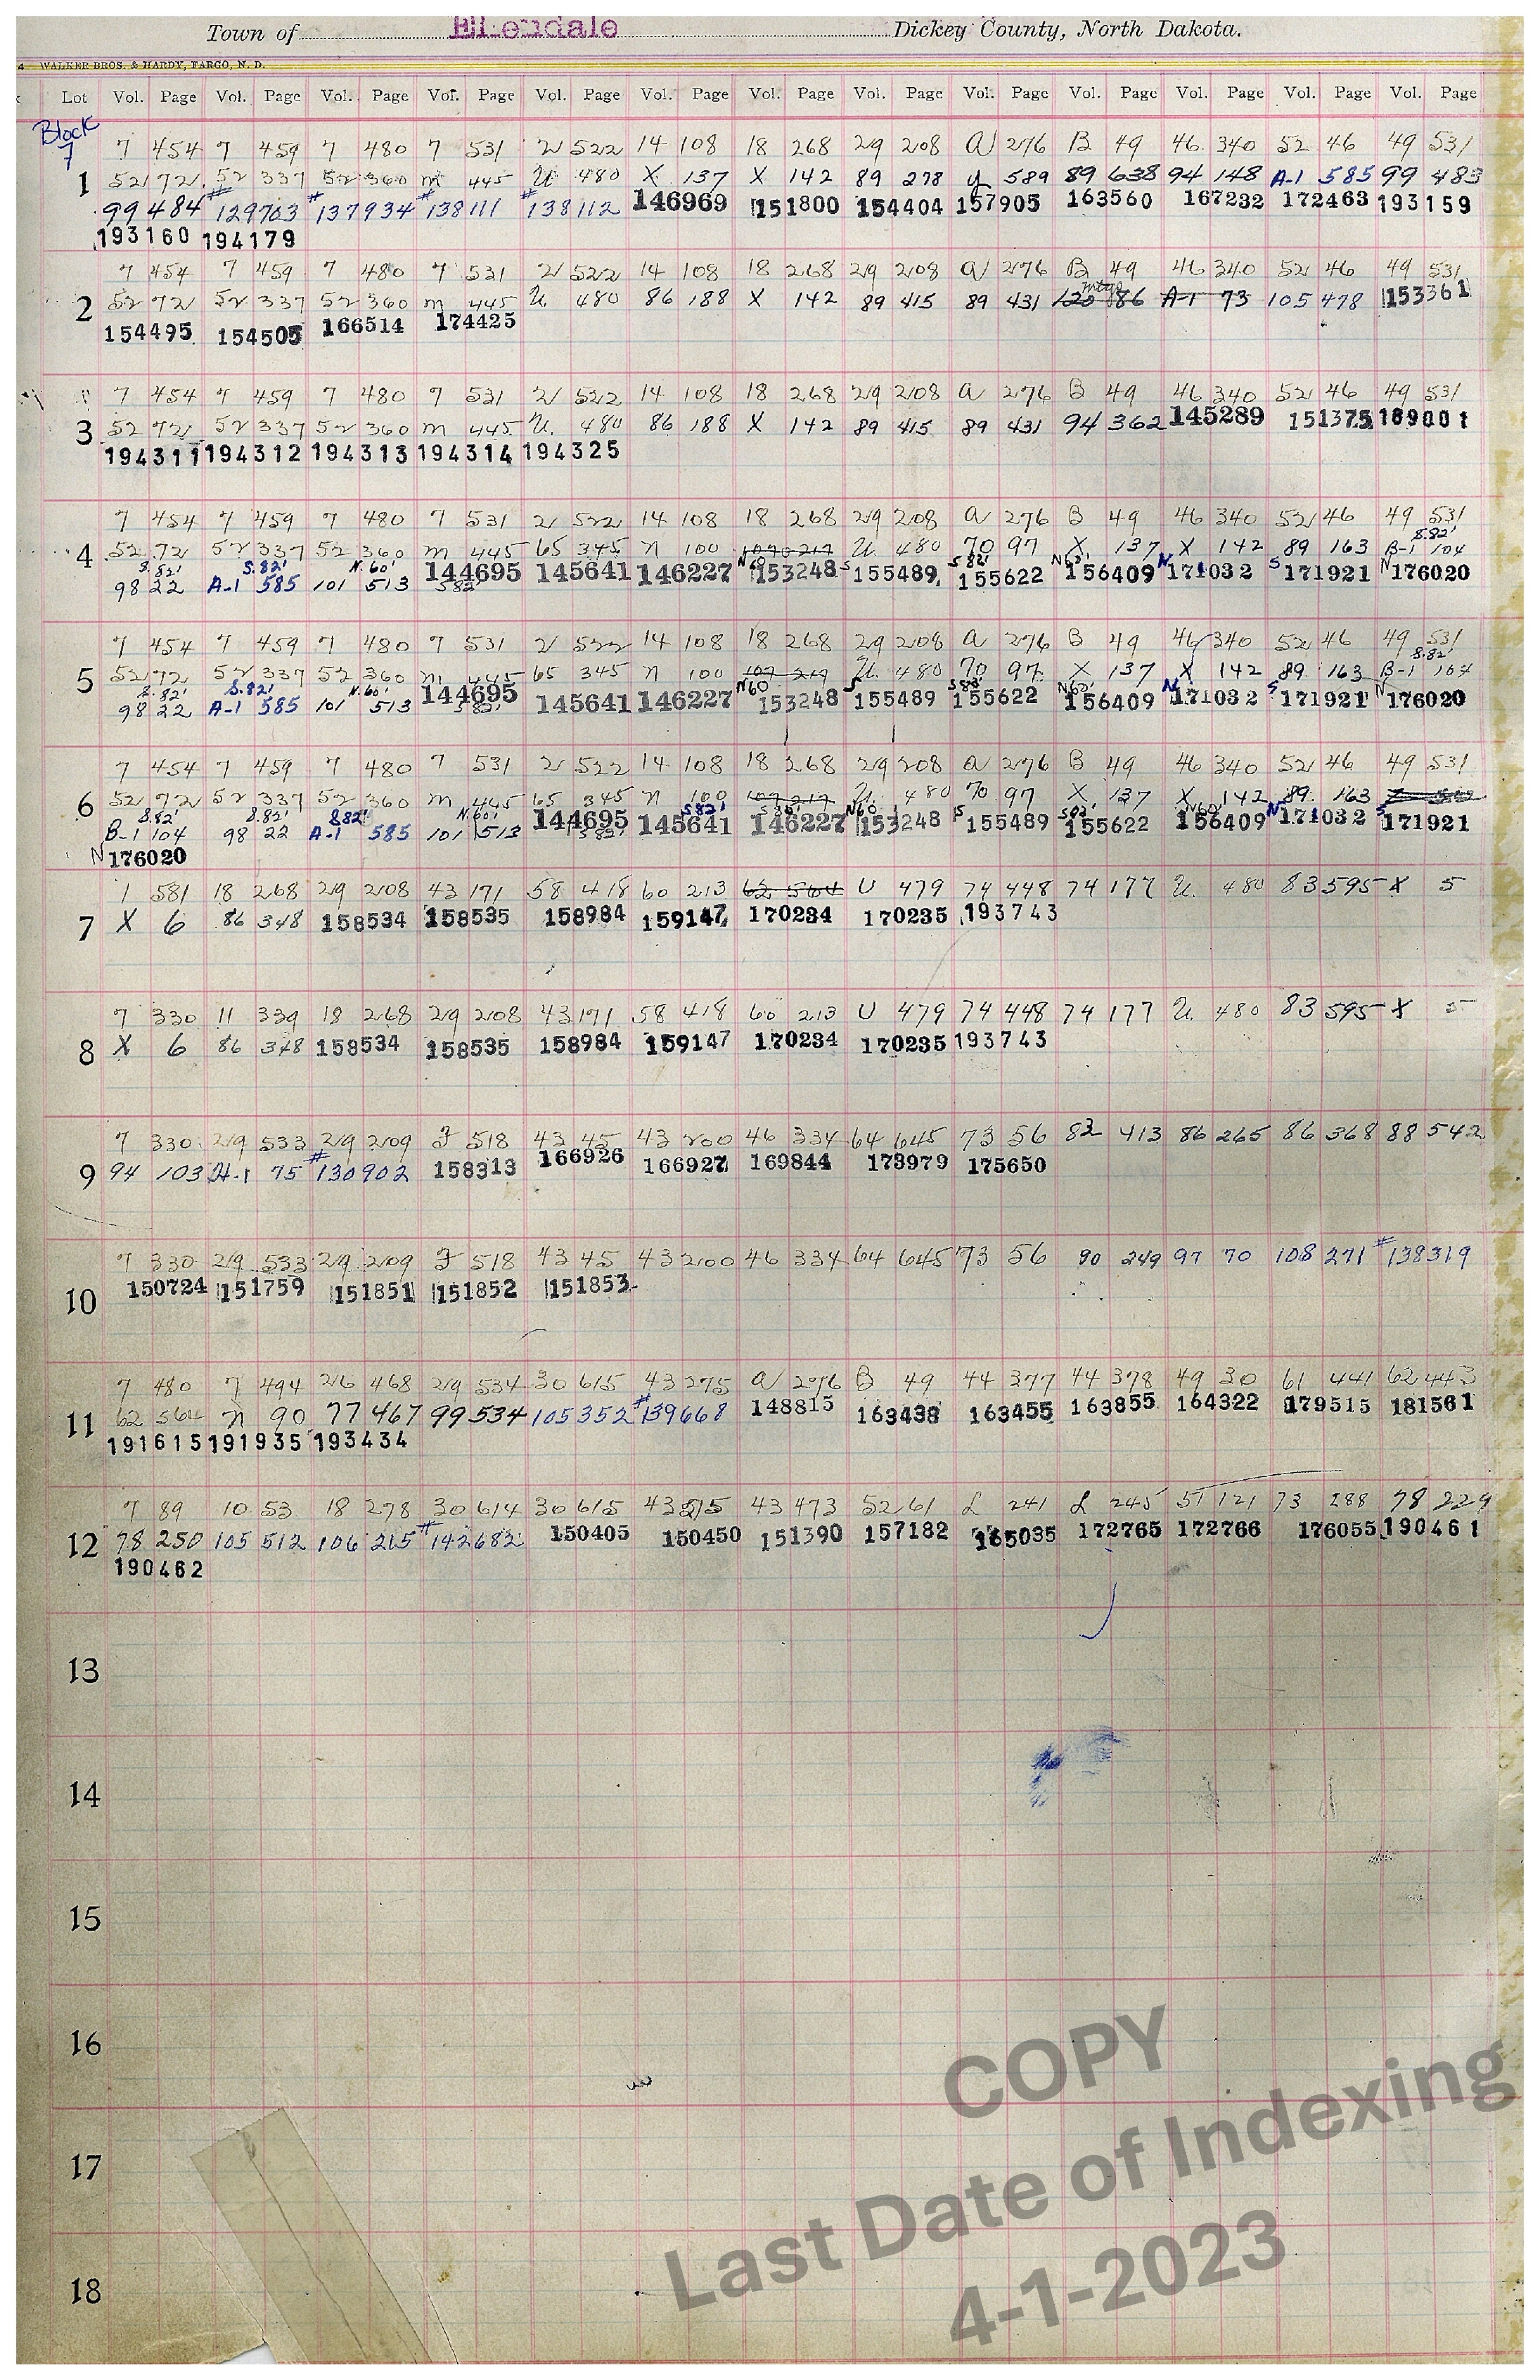 Town of Ellendale Dickey County, North Dakota.
4 WALKER BROS. & HARDY, FARGO, N. D.
Lot Vol. Page Vol. Page Vol. Page Vol. Page Vol. Page Vol. Page Vol. Page Vol. Page Vol. Page Vol. Page Vol. Page Vol. Page Vol. Page
Block
7
7 454 7 459 7 480 7 531 21 522 14 108 18 268 29 208 a 276 B 49 46 340 52 46 49 531
1 52 72 52 337 52 360 m 445 U 480 X 137 X 142 89 278 y 589 89 638 94 148 A-1 585 99 483
99 484 #129763 #137934 #138111 #138112 146969 151800 154404 157905 163560 167232 172463 193159
193160 194179
7 454 7 459 7 480 7 531 21 522 14 108 18 268 29 208 a 276 B 49 46 340 52 46 49 531
2 52 72 52 337 52 360 m 445 U 480 86 188 X 142 89 415 89 431 120 mtg 86 A-1 73 105 478 153361
154495 154505 166514 174425
7 454 7 459 7 480 7 531 21 522 14 108 18 268 29 208 a 276 B 49 46 340 52 46 49 531
3 52 72 52 337 52 360 m 445 U 480 86 188 X 142 89 415 89 431 94 362 145289 151375 189001
194311 194312 194313 194314 194325
7 454 7 459 7 480 7 531 21 522 14 108 18 268 29 208 a 276 B 49 46 340 52 46 49 531
4 52 72 52 337 52 360 m 445 65 345 n 100 107 217 U 480 70 97 X 137 X 142 89 163 S.82' B-1 104
S.82' 98 22 S.82' A-1 585 N.60' 101 513 144695 S82' 145641 146227 N60 153248 S 155489 S82' 155622 N60' 156409 N 171032 S 171921 N 176020
7 454 7 459 7 480 7 531 21 522 14 108 18 268 29 208 a 276 B 49 46 340 52 46 49 531
5 52 72 52 337 52 360 m 445 65 345 n 100 107 217 U 480 70 97 X 137 X 142 89 163 S.82' B-1 104
S.82' 98 22 S.82' A-1 585 N.60' 101 513 144695 S82' 145641 146227 N60 153248 S 155489 S82' 155622 N60' 156409 N 171032 S 171921 N 176020
7 454 7 459 7 480 7 531 21 522 14 108 18 268 29 208 a 276 B 49 46 340 52 46 49 531
6 52 72 52 337 52 360 m 445 65 345 n 100 107 217 U 480 70 97 X 137 X 142 89 163
S.82' B-1 104 S.82' 98 22 S82' A-1 585 N.60' 101 513 144695 S82' 145641 S.82' 146227 N60 153248 S 155489 S82' 155622 N60' 156409 N 171032 S 171921
N 176020
1 581 18 268 29 208 43 171 58 418 60 213 62 564 U 479 74 448 74 177 U 480 83 595 X 5
7 X 6 86 348 158534 158535 158984 159147 170234 170235 193743
7 330 11 339 18 268 29 208 43 171 58 418 60 213 U 479 74 448 74 177 U 480 83 595 X 5
8 X 6 86 348 158534 158535 158984 159147 170234 170235 193743
7 330 29 533 29 209 J 518 43 45 43 200 46 334 64 645 73 56 82 413 86 265 86 368 88 542
9 94 103 A-1 75 #130902 158313 166926 166927 169844 173979 175650
7 330 29 533 29 209 J 518 43 45 43 200 46 334 64 645 73 56 90 249 97 70 108 271 #138319
10 150724 151759 151851 151852 151853
7 480 7 494 26 468 29 534 30 615 43 275 a 276 B 49 44 377 44 378 49 30 61 441 62 443
11 62 564 n 90 77 467 99 534 105 352 #139668 148815 163438 163455 163855 164322 179515 181561
191615 191935 193434
7 89 10 53 18 278 30 614 30 615 43 275 43 473 52 61 L 241 L 245 51 121 73 288 78 229
12 78 250 105 512 106 265 #142682 150405 150450 151390 157182 165035 172765 172766 176055 190461
190462
13
14
15
16
17
18
COPY
Last Date of Indexing
4-1-2023